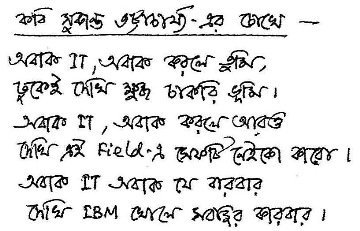 কবি সুকান্ত ভট্টাচার্য্য-এর চোখে —
অবাক IT, অবাক করলে তুমি,
ঢুকেই দেখি ক্ষুব্ধ চাকরি ভূমি।
অবাক IT, অবাক করলে আরও
দেখি এই Field-এ সেফটি নেইকো কারো।
অবাক IT অবাক যে বারবার
দেখি IBM খোলে সবজির কারবার।